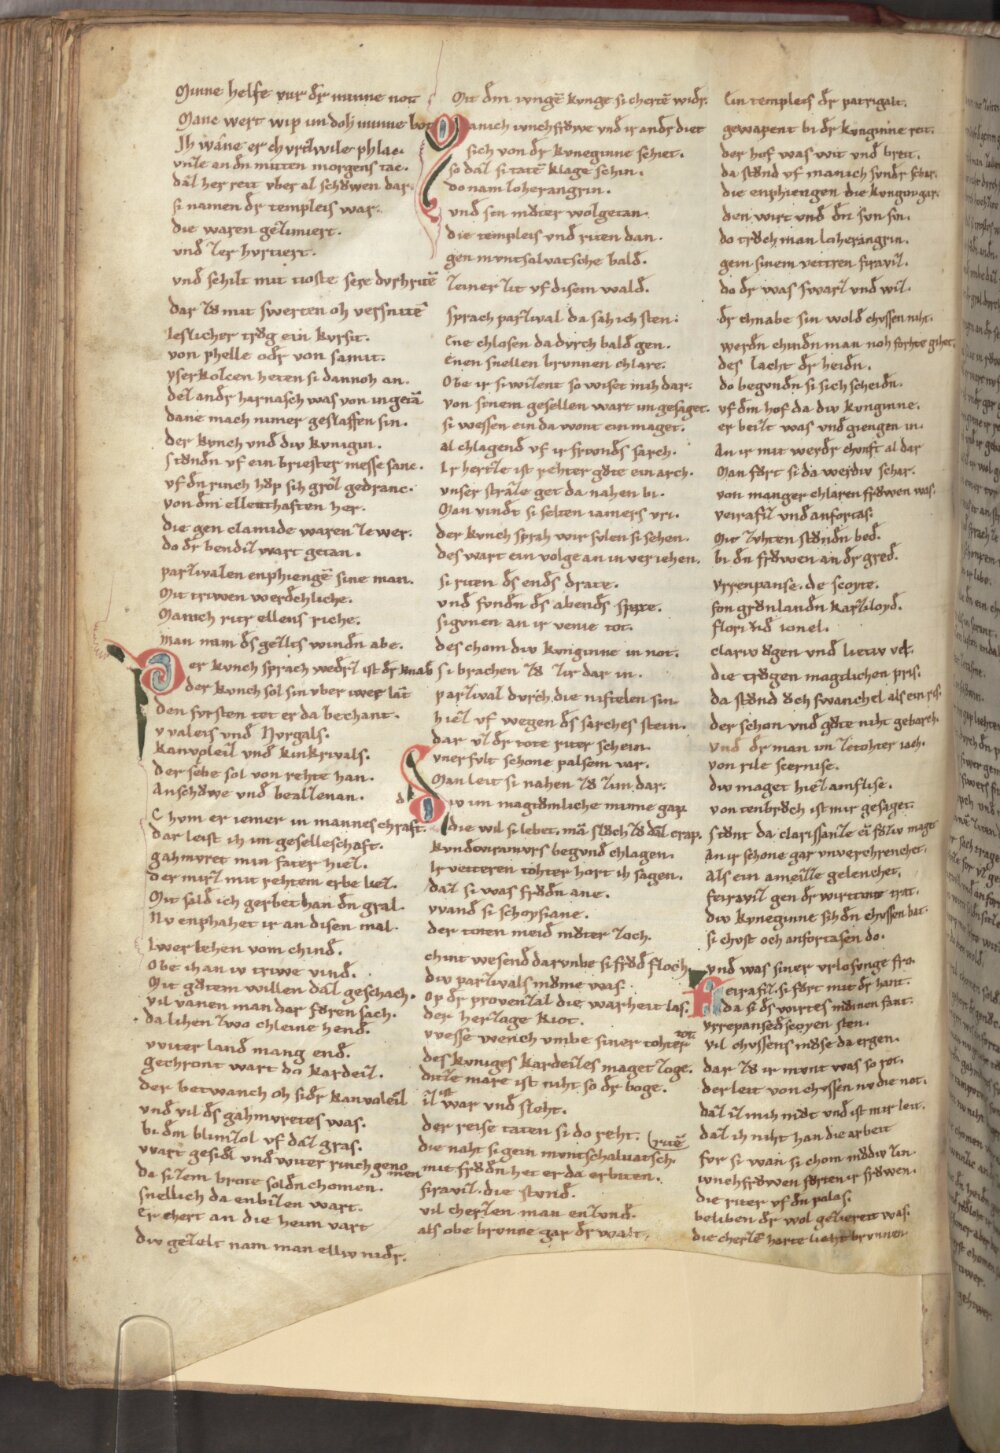 Minne helfe vur dr minne not
Mane wert wip un doh minne bot
Jh wane er chvrcwile phlac.
vnze an dn mitten morgens tac.
daz her reit vber al schowen dar.
si namen dr templeis war.
die waren gezimiert.
und zer hvrtiert.
und schilt mit tioste sere dvrhrite
dar zo mit swerten oh versnite
ieslicher trog ein kvrsit.
von phelle odr von samit.
yserkolcen heten si dannoh an.
dez andr harnasch was von in getan
dane mach nimer geslaffen sin.
der kvnch vnd div kvnigin.
stondn vf ein briester messe sanc.
vf dn rinch hop sih groz gedranc.
von dm ellenthaften her.
die gen clamide waren ze wer.
do dr bendiz wart getan.
parzivalen enphienge sine man.
Mit triwen werdechliche.
Manich ritr ellens riche.
man nam ds gezlts windn abe.
Der kvnch sprach wedrz ist dr knab
der kvnch sol sin vber iwer lat
den fvrsten tet er da bechant.
vvaleis und Norgals.
kanvoleiz und kinkrivals.
der selbe sol von rehte han.
Anschowe und beallenan.
Chvm er iemer in mannes chraft.
dar leist ih im geselleschaft.
gahmvret min fater hiez.
der mirz mit rehtem erbe liez.
Mit sald ich gerbet han dn gral.
Nv enphahet ir an disen mal.
iwer lehen vom chind.
Obe ih an iv triwe vind.
Mit gotem willen daz geschach.
vil vanen man dar foren sach.
da lihen zwo chleine hend.
witer land mang end.
gechront wart do kardeiz.
der betwanch oh sidr kanvoleiz
und vil ds gahmvretes was.
bi dm blimzol vf daz gras.
wart gesidl und witer rinch genomen
da si zem brote soldn chomen.
snellich da enbizen wart.
Er chert an die heim vart
div gezelt nam man elliv nidr.
Mit dm ivnge kvnge si cherte widr.
Manich ivnchfrowe und ir andr diet
sich von dr kvneginne schiet.
so daz si tate klage schin.
do nam loherangrin.
und sin moter wolgetan.
die templeis und riten dan.
gen mvntsalvatsche bald.
zeiner zit vf disem wald.
sprach parzival da sah ich sten.
Eine chlosen da dvrch bald gen.
Einen snellen brvnnen chlare.
Obe ir si wizent so wiset mih dar.
von sinem gesellen wart im gesaget.
si wessen ein da wont ein maget.
al chlagend vf ir frivnds sarch.
Ir herze ist rehter gote ein arch.
vnser straze get da nahen bi.
Man vindt si selten iamers vri.
der kvnch sprah wir svlen si sehen.
des wart ein volge an im veriehen.
si riten ds ends drate.
und fvndn ds abends spate.
sigvnen an ir venie tot.
des chom div kvniginne in not.
si brachen zo zir dar in.
parzival dvrch die niftelen sin
hiez vf wegen ds sarches stein.
dar vz dr tote riter schein.
vnervvlt schone palsem var.
Man leit si nahen zo zim dar.
div im magtomliche minne gap
die wil si lebet. man sloch zo daz grap.
kvndowiramvrs begvnd chlagen.
Ir vetteren tohter hort ih sagen.
daz si was frodn ane.
wand si schoysiane.
der toten meid moter zoch.
chint wesend darvmbe si frod floch
div parzivals mome was
op dr provenzal die warheit las.
der herzoge kiot.
wesse wenich vmbe siner tohter tot.
des kvniges kardeizes maget zoge.
ditze mare ist niht so dr boge.
iz ist war und sleht.
der reise taten si do reht.
die naht si gein mvntschaluatsch. riten
mit frodn het er da erbiten.
firaviz. die stvnd.
vil cherzen man enzvnd.
als obe brvnne gar dr walt.
Ein templeis dr patrigalt.
gewapent bi dr kvnginne reit.
der hof was wit vnd breit.
da stond vf manich svndr schar.
die enphiengen die kvngin gar.
den wirt und dn svn sin.
do troch man loherangrin.
gein sinem vettren firaviz.
do dr was swarz und wiz.
dr chnabe sin wold chvssen niht.
werdn chindn man noh forhte gihet.
des lacht dr heidn.
do begvndn si sich scheidn.
vf dm hof da div kvnginne.
er beizt was und giengen in.
An ir mit werdr chvnft al dar
Man fort si da werdiv schar.
von manger chlaren frowen was.
veirafiz vnd anfortas.
Mit zvhten stondn bed.
bi dn frowen an dr gred.
vrrepanse. de scoye.
fon gronlandn karziloyd.
florischid ionel.
clariv ogen und lieziv vel.
die trogen magtlichen pris.
da stond och swanchel als ein ris.
der schon und gote niht gebrach.
Und dr man im ze tohter iach.
von rile scernise.
div maget hiez amflise.
von tenbroch ist mir gesaget.
stont da clarissanze ein soziv maget
An ir schone gar vnverehrenchet.
als ein ameize gelenchet.
feirafiz gen dr wirtinne trat.
div kvneginne sih dn chvssen bat.
si chvst och anfortasen do.
und was siner vrlosvnge fro.
Feirafiz si fort mit dr hant.
da si ds wirtes momen fant.
vrrepansedscoyen sten.
vil chvssens mose da ergen.
dar zo ir mvnt was so rot.
der leit von chvssen nv die not.
daz iz mih mot und ist mir leit.
daz ih niht han die arbeit
for si wan si chom modiv zin
ivnchfrowen forten ir frowen.
die riter vf dn palas.
beliben dr wol gezieret was.
die cherzen harte lieht brvnnen